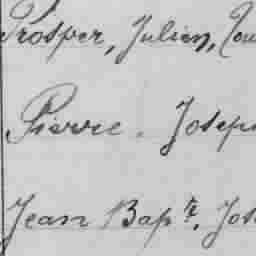 Prosper, Julien, Lou
Pierre. Joseph
Jean Bapte. Jos